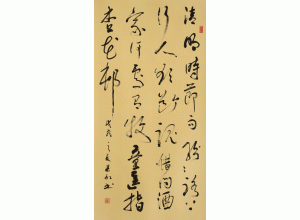 清明时节雨纷纷路上
行人欲断魂借问酒
家何处有牧童遥指
杏花村